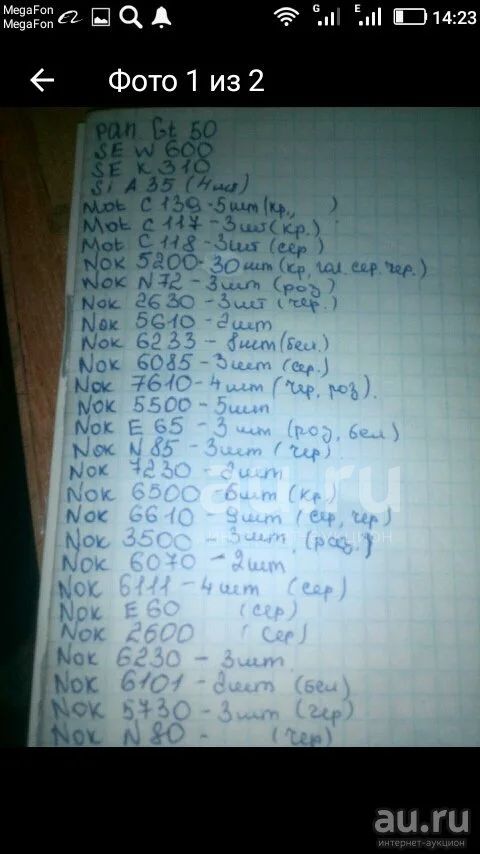 MegaFon
MegaFon
G E 14:23
Фото 1 из 2
Pan Gt 50
SE W 600
SE K 310
Si A 35 (4шт)
Mot C 139-5шт(кр., )
Mot C 117-3шт(кр.)
Mot C 118-3шт(сер)
NOK 5200-30шт(кр, гол. сер. чер.)
NOK N72-3шт(роз)
NOK 2630-3шт(чер.)
NOK 5610-2шт
NOK 6233-8шт(бел.)
NOK 6085-3шт(сер.)
NOK 7610-4шт(чер, роз).
NOK 5500-5шт
NOK E 65-3шт(роз, бел)
NOK N85-3шт(чер)
NOK 7230-2шт
NOK 6500-6шт(кр)
NOK 6610-9шт(сер, чер)
NOK 3500-3шт(роз.)
NOK 6070-2шт
NOK 6111-4шт(сер)
NOK E60 (сер)
NOK 2600 (сер)
NOK 6230-3шт
NOK 6101-2шт(бел)
NOK 5730-3шт(чер)
NOK N80- (чер)
au.ru
интернет-аукцион
au.ru
интернет-аукцион